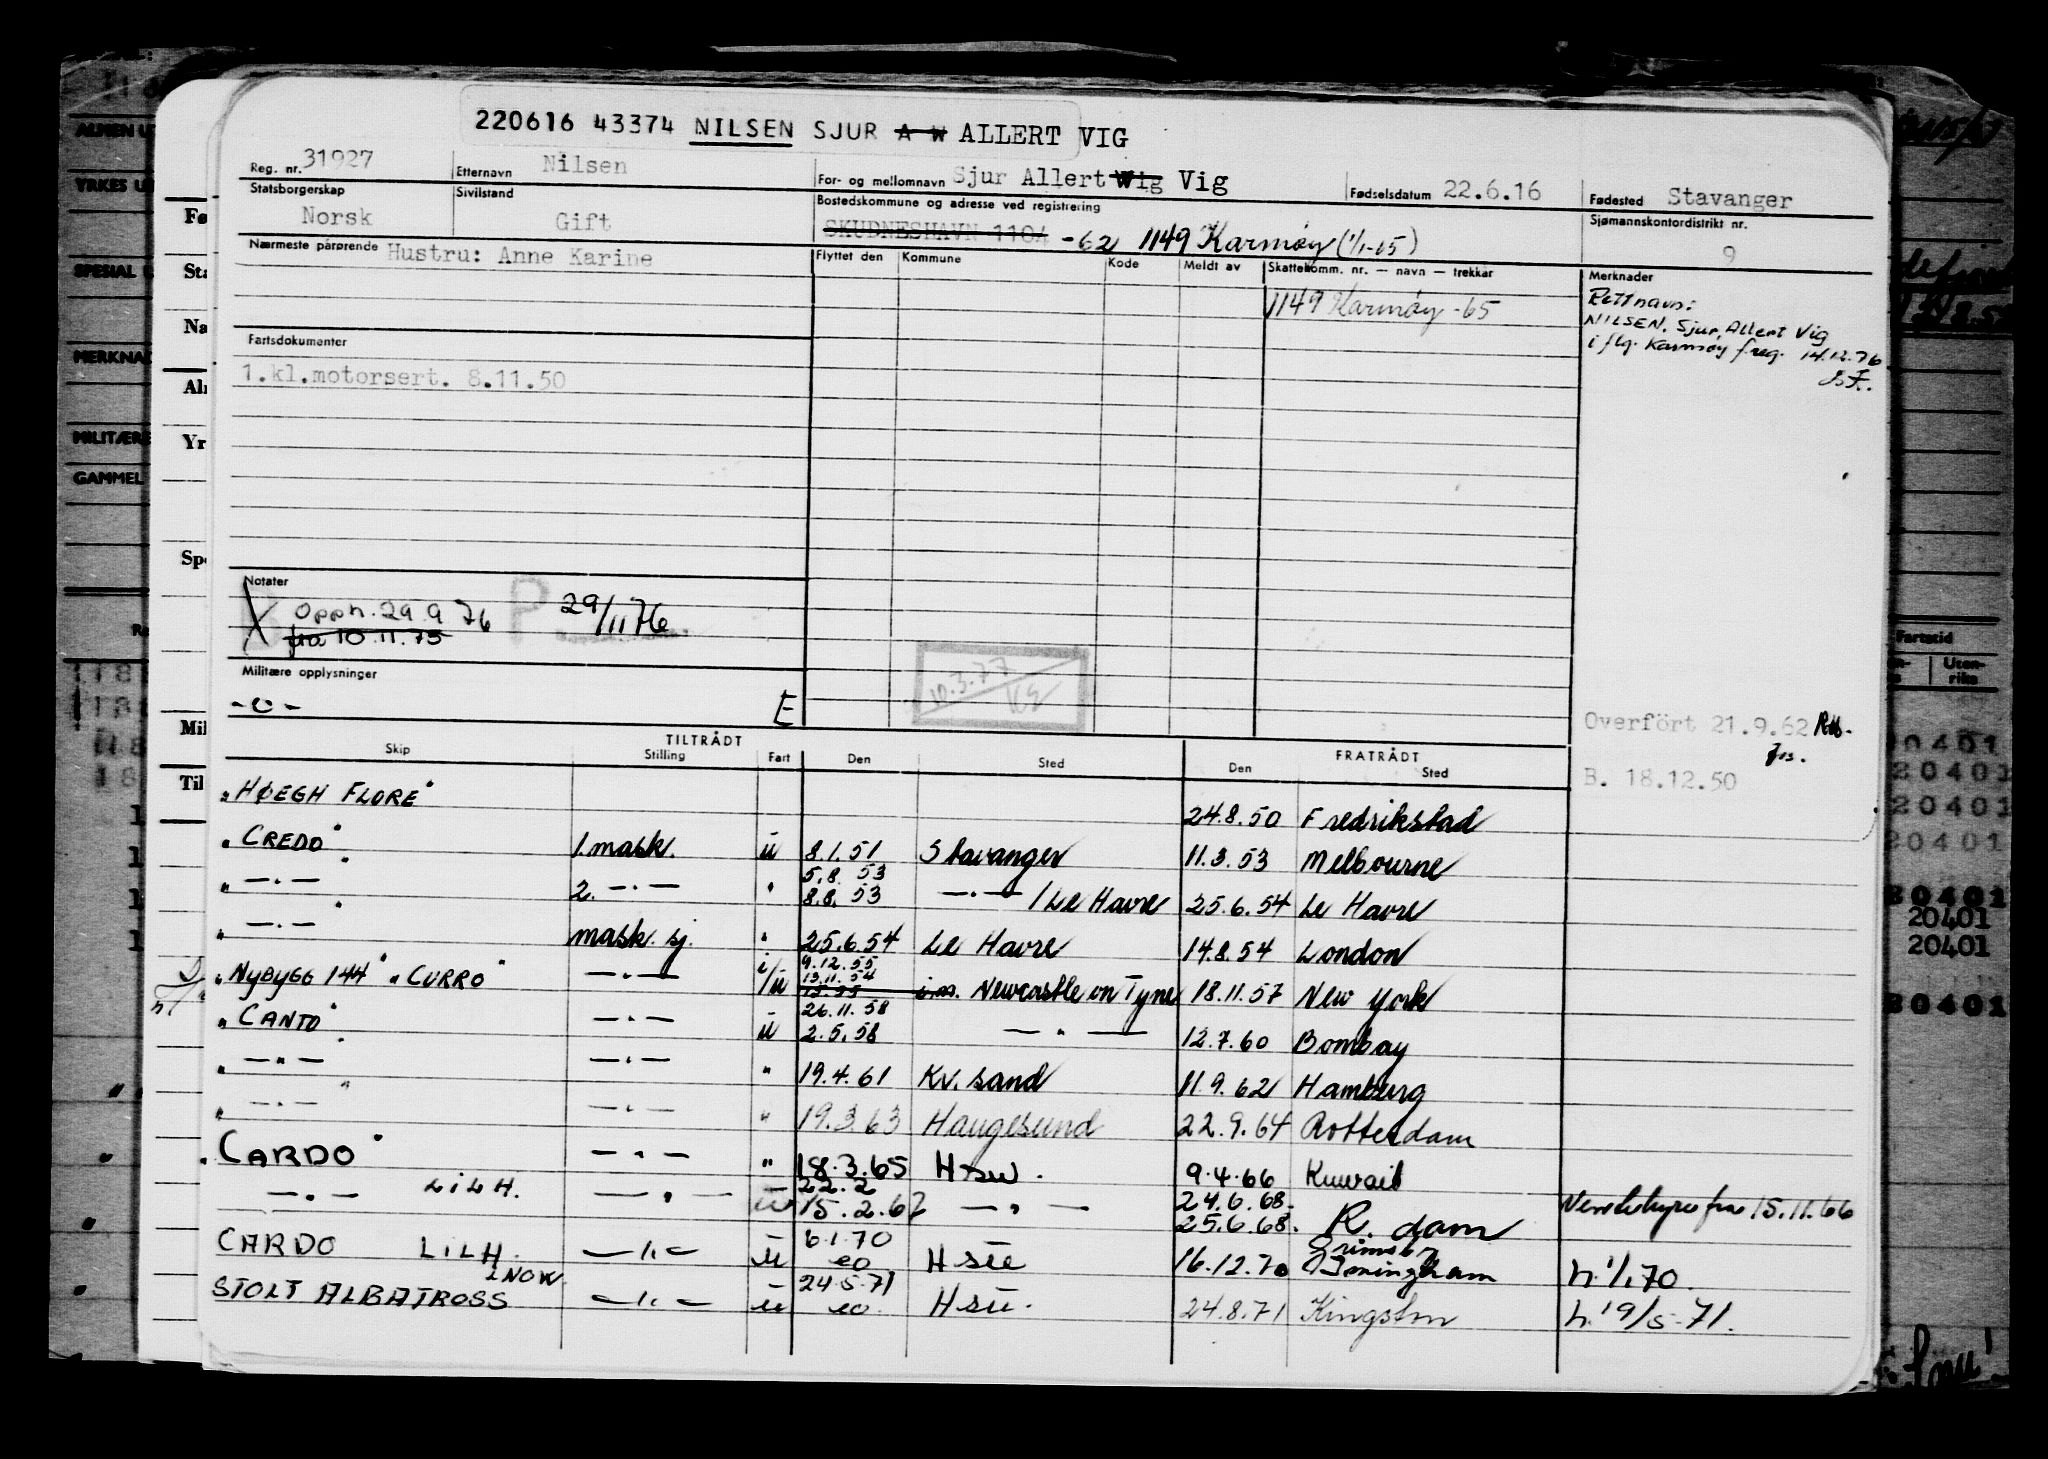 220616 43374 NILSEN SJUR A W ALLERT VIG
Reg. nr. 31927 Etternavn Nilsen For- og mellomnavn Sjur Allert Wig Vig Fødselsdatum 22.6.16 Fødested Stavanger
Statsborgerskap Norsk Sivilstand Gift Bostedskommune og adresse ved registrering SKUDNESHAVN 110A -62 1149 Karmøy (1/1-65) Sjømannskontordistrikt nr. 9
Nærmeste pårørende Hustru: Anne Karine Flyttet den Kommune Kode Meldt av Skattekomm. nr. — navn — trekkår Merknader
1149 Karmøy -65
Rett navn:
NILSEN, Sjur, Allert Vig
i flg. Karmøy f.reg. 14.12.76
Fartsdokumenter
1.kl.motorsert. 8.11.50
Notater
Opph. 29.9.76 P 29/11 76
fra 10.11.75
Militære opplysninger
-o- E
10.3.77
Overfört 21.9.62
B. 18.12.50
Skip TILTRÅDT Stilling Fart Den Sted FRATRÅDT Den Sted
"HØEGH FLORE" 24.8.50 Fredrikstad
"CREDO" 1.mask. u 8.1.51 Stavanger 11.3.53 Melbourne
5.8.53
" —·— " 2. —·— " 8.8.53 —·— / Le Havre 25.6.54 Le Havre
" —·— " mask. sj. " 25.6.54 Le Havre 14.8.54 London
9.12.55
13.11.54
"NYBYGG 144" "CURRO" —·— i/u i.m. Newcastle on Tyne 18.11.57 New York
26.11.58
"CANTO" —·— u 2.5.58 —·— 12.7.60 Bombay
" —"— " —·— " 19.4.61 Kv.sand 11.9.62 Hamburg
" —·— " —·— " 19.3.63 Haugesund 22.9.64 Rotterdam
"CARDO" —·— " 18.3.65 Hsu. 9.4.66 Kuwait
22.2 24.6.68.
—·— LILH. —·— u 15.2.67 —·— 25.6.68. R.dam 15.11.66
6.1.70 Grimsby
CARDO LILH. —·— u eo Hsu 16.12.70 Imingham h. 1/1.70.
LNOW 24.5.71
STOLT ALBATROSS —·— u eo. Hsu. 24.8.71 Kingston h. 19/5-71.
ALMEN U
YRKES U
SPESIAL U
MERKNA
MILITÆRE
GAMMEL
Fø
Sta
Na
Al
Yr
Spe
Mil
Til
Fartstid
Uten-
riks
20401
20401
20401
20401
20401
20401
20401
20401